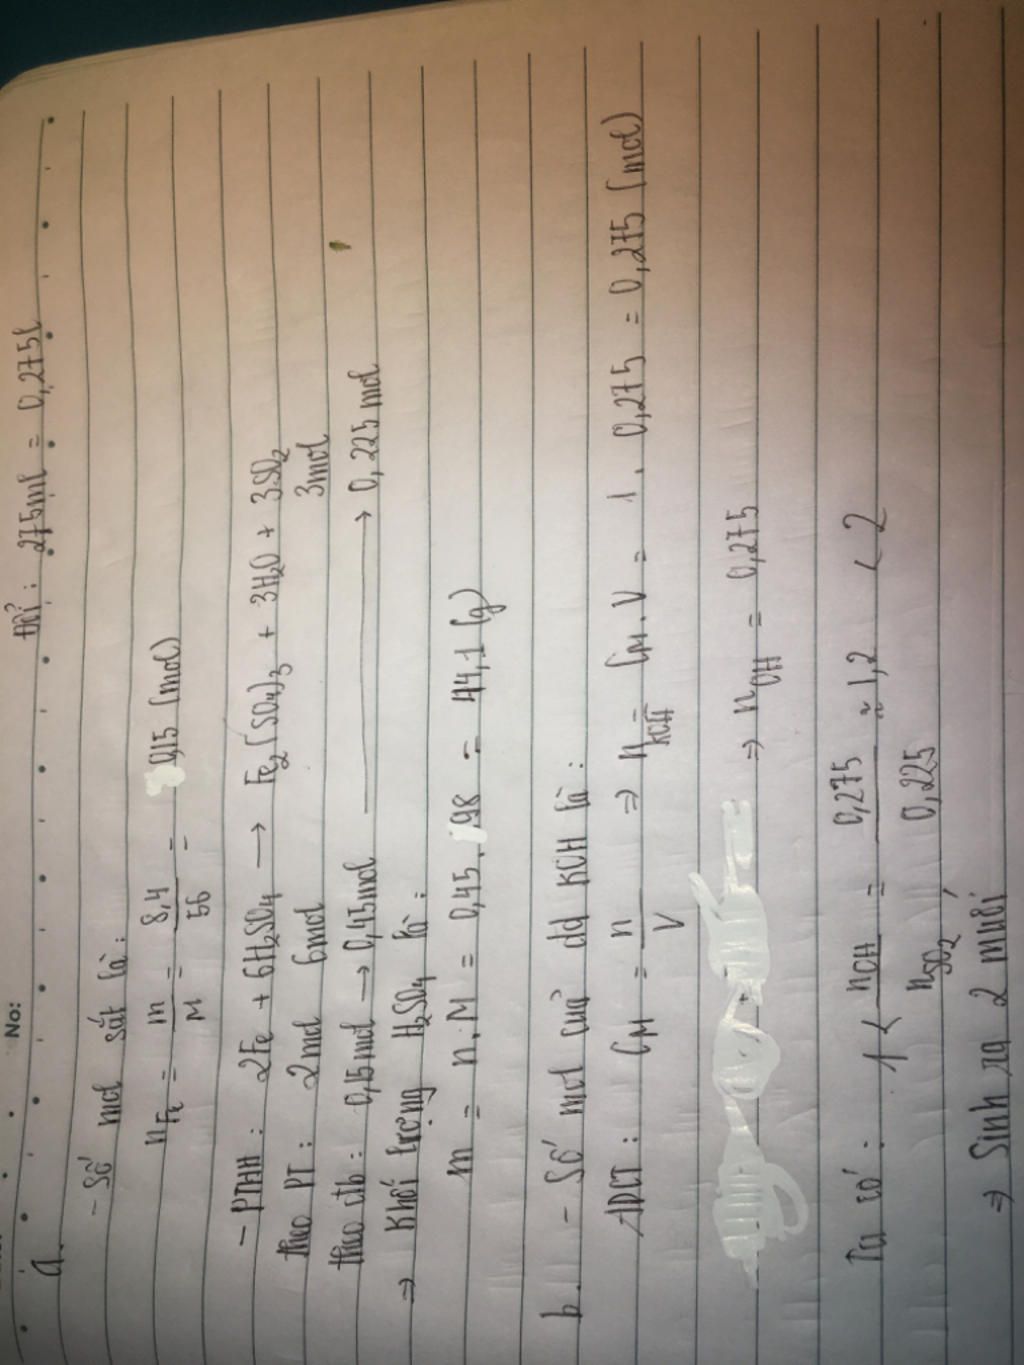 No:
Đổi: 275ml = 0,275l
a.
- Số mol sắt là:
nFe = m/M = 8,4/56 = 0,15 (mol)
- PTHH: 2Fe + 6H2SO4 → Fe2(SO4)3 + 3H2O + 3SO2
theo PT: 2mol 6mol 3mol
theo đb: 0,15mol → 0,45mol → 0,225mol
⇒ Khối lượng H2SO4 là:
m = n.M = 0,45.98 = 44,1 (g)
b. - Số mol của dd KOH là:
ADCT: CM = n/V ⇒ nKOH = CM.V = 1.0,275 = 0,275 (mol)
⇒ nOH = 0,275
Ta có: 1 < nOH/nSO2 = 0,275/0,225 ≈ 1,2 < 2
⇒ Sinh ra 2 muối